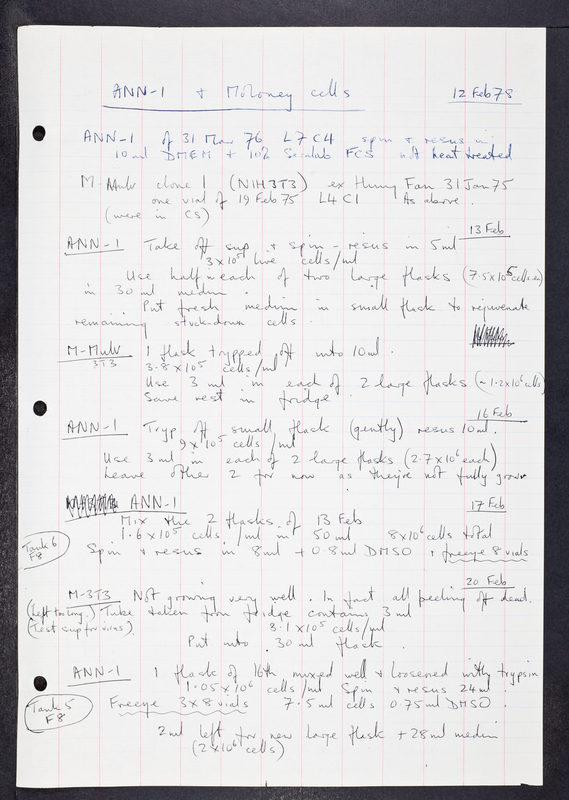 ANN-1 + Moloney cells 12 Feb 78
ANN-1 of 31 Mar 76 L7C4 spin + resus in
10 ml DMEM + 10% Seralab FCS not heat treated
M-Mulv clone 1 (NIH3T3) ex Hung Fan 31 Jan 75
one vial of 19 Feb 75 L4C1 As above.
(were in CS)
13 Feb
ANN-1 Take off sup + spin - resus in 5 ml
3 x 10⁵ live cells/ml
Use half in each of two large flasks (7.5 x 10⁵ cells ea)
in 30 ml medm.
Put fresh medium in small flask to rejuvenate
remaining stuck-down cells.
M-Mulv 1 flask trypped off into 10 ml.
3T3 3.8 x 10⁵ cells/ml
Use 3 ml in each of 2 large flasks (~1.2 x 10⁶ cells)
Save rest in fridge.
16 Feb
ANN-1 Tryp off small flask (gently) resus 10 ml.
9 x 10⁵ cells/ml
Use 3 ml in each of 2 large flasks (2.7 x 10⁶ each)
Leave other 2 for now as they're not fully grown
17 Feb
ANN-1
Mix the 2 flasks of 13 Feb
1.6 x 10⁵ cells/ml in 50 ml 8 x 10⁶ cells total
Tank 6 F8
Spin + resus in 8 ml + 0.8 ml DMSO + freeze 8 vials
20 Feb
M-3T3 Not growing very well. In fact all peeling off dead.
(Left too long.) Tube taken from fridge contains 3 ml
(Test sup for virus) 3.1 x 10⁵ cells/ml
Put into 30 ml flask.
ANN-1 1 flask of 16th mixed well & loosened with trypsin
1.05 x 10⁶ cells/ml Spin + resus 24 ml.
Tank 5 F8
Freeze 3 x 8 vials 7.5 ml cells 0.75 ml DMSO.
2 ml left for new large flask + 28 ml medm
(2 x 10⁶ cells)